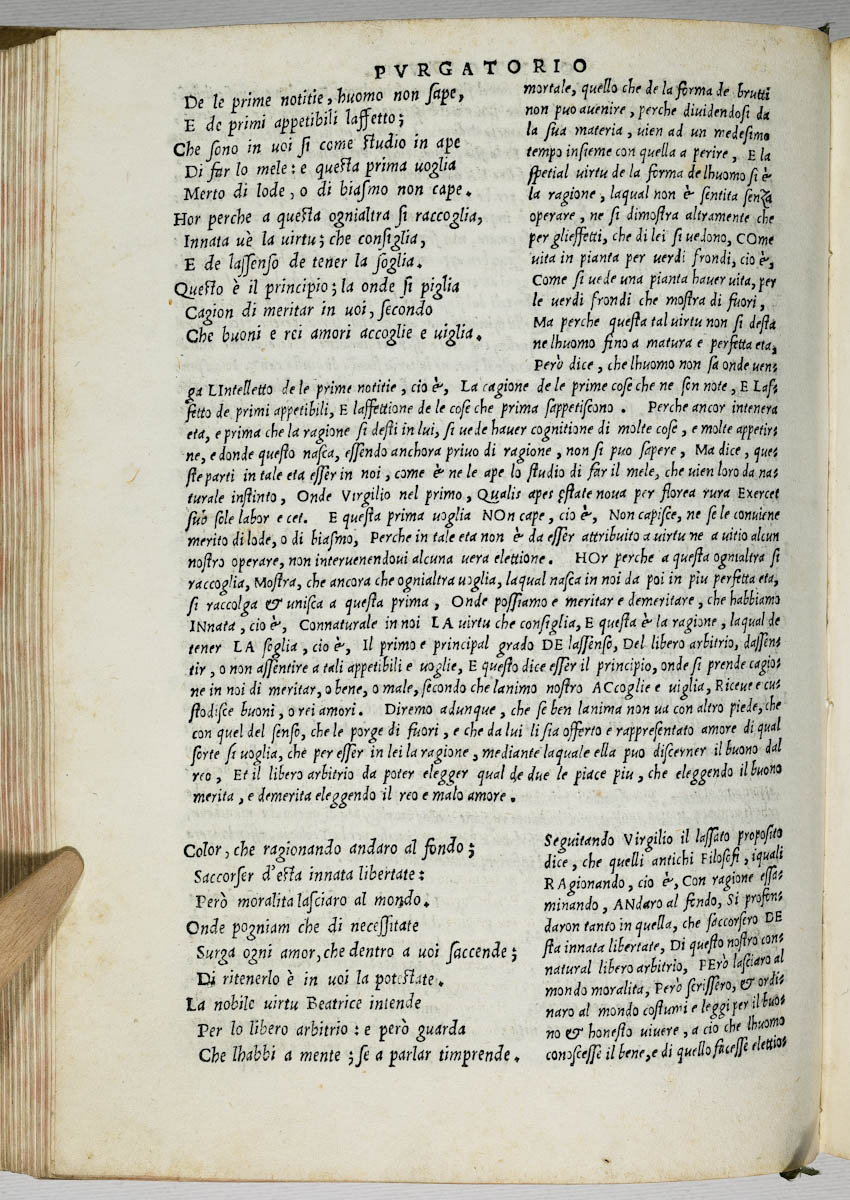 PVRGATORIO
De le prime notitie, huomo non sape,
E de primi appetibili laffetto;
Che sono in uoi si come studio in ape
Di far lo mele: e questa prima uoglia
Merto di lode, o di biasmo non cape.
Hor perche a questa ognialtra si raccoglia,
Innata uè la uirtu; che consiglia,
E de lassenso de tener la soglia.
Questo è il principio; la onde si piglia
Cagion di meritar in uoi, secondo
Che buoni e rei amori accoglie e uiglia.
mortale, quello che de la forma de brutti
non puo auenire, perche diuidendosi da
la sua materia, uien ad un medesimo
tempo insieme con quella a perire, E la
spetial uirtu de la forma de lhuomo si è
la ragione, laqual non è sentita senza
operare, ne si dimostra altramente che
per glieffetti, che di lei si uedono, COme
uita in pianta per uerdi frondi, cio è,
Come si uede una pianta hauer uita, per
le uerdi frondi che mostra di fuori,
Ma perche questa tal uirtu non si desta
ne lhuomo fino a matura e perfetta eta,
Però dice, che lhuomo non sa onde uen-
ga LIntelletto de le prime notitie, cio è, La cagione de le prime cose che ne son note, E LAf-
fetto de primi appetibili, E laffettione de le cose che prima sappetiscono. Perche ancor intenera
eta, e prima che la ragione si desti in lui, si uede hauer cognitione di molte cose, e molte appetir-
ne, e donde questo nasca, essendo anchora priuo di ragione, non si puo sapere, Ma dice, que-
ste parti in tale eta esser in noi, come è ne le ape lo studio di far il mele, che uien loro da na-
turale instinto, Onde Virgilio nel primo, Qualis apes estate noua per florea rura Exercet
sub sole labor e cet. E questa prima uoglia NOn cape, cio è, Non capisce, ne se le conuiene
merito di lode, o di biasmo, Perche in tale eta non è da esser attribuito a uirtu ne a uitio alcun
nostro operare, non interuenendoui alcuna uera elettione. HOr perche a questa ognialtra si
raccoglia, Mostra, che ancora che ognialtra uoglia, laqual nasca in noi da poi in piu perfetta eta,
si raccolga & unisca a questa prima, Onde possiamo e meritar e demeritare, che habbiamo
INnata, cio è, Connaturale in noi LA uirtu che consiglia, E questa è la ragione, laqual de
tener LA soglia, cio è, Il primo e principal grado DE lassenso, Del libero arbitrio, dassen-
tir, o non assentire a tali appetibili e uoglie, E questo dice esser il principio, onde si prende cagio-
ne in noi di meritar, o bene, o male, secondo che lanimo nostro ACcoglie e uiglia, Riceue e cu-
stodisce buoni, o rei amori. Diremo adunque, che se ben lanima non ua con altro piede, che
con quel del senso, che le porge di fuori, e che da lui li sia offerto e rappresentato amore di qual
sorte si uoglia, che per esser in lei la ragione, mediante laquale ella puo discerner il buono dal
reo, Et il libero arbitrio da poter elegger qual de due le piace piu, che eleggendo il buono
merita, e demerita eleggendo il reo e malo amore.
Color, che ragionando andaro al fondo;
Saccorser d'esta innata libertate:
Però moralita lasciaro al mondo.
Onde pogniam che di necessitate
Surga ogni amor, che dentro a uoi saccende;
Di ritenerlo è in uoi la potestate.
La nobile uirtu Beatrice intende
Per lo libero arbitrio: e però guarda
Che lhabbi a mente; se a parlar timprende.
Seguitando Virgilio il lassato proposito
dice, che quelli antichi Filosofi, iquali
RAgionando, cio è, Con ragione essa-
minando, ANdaro al fondo, Si profon-
daron tanto in quella, che saccorsero DE
sta innata libertate, Di questo nostro con-
natural libero arbitrio, PErò lasciaro al
mondo moralita, Però scrissero, & ordi-
naro al mondo costumi e leggi per il buo-
no & honesto uiuere, a cio che lhuomo
conoscesse il bene, e di quello facesse elettio-